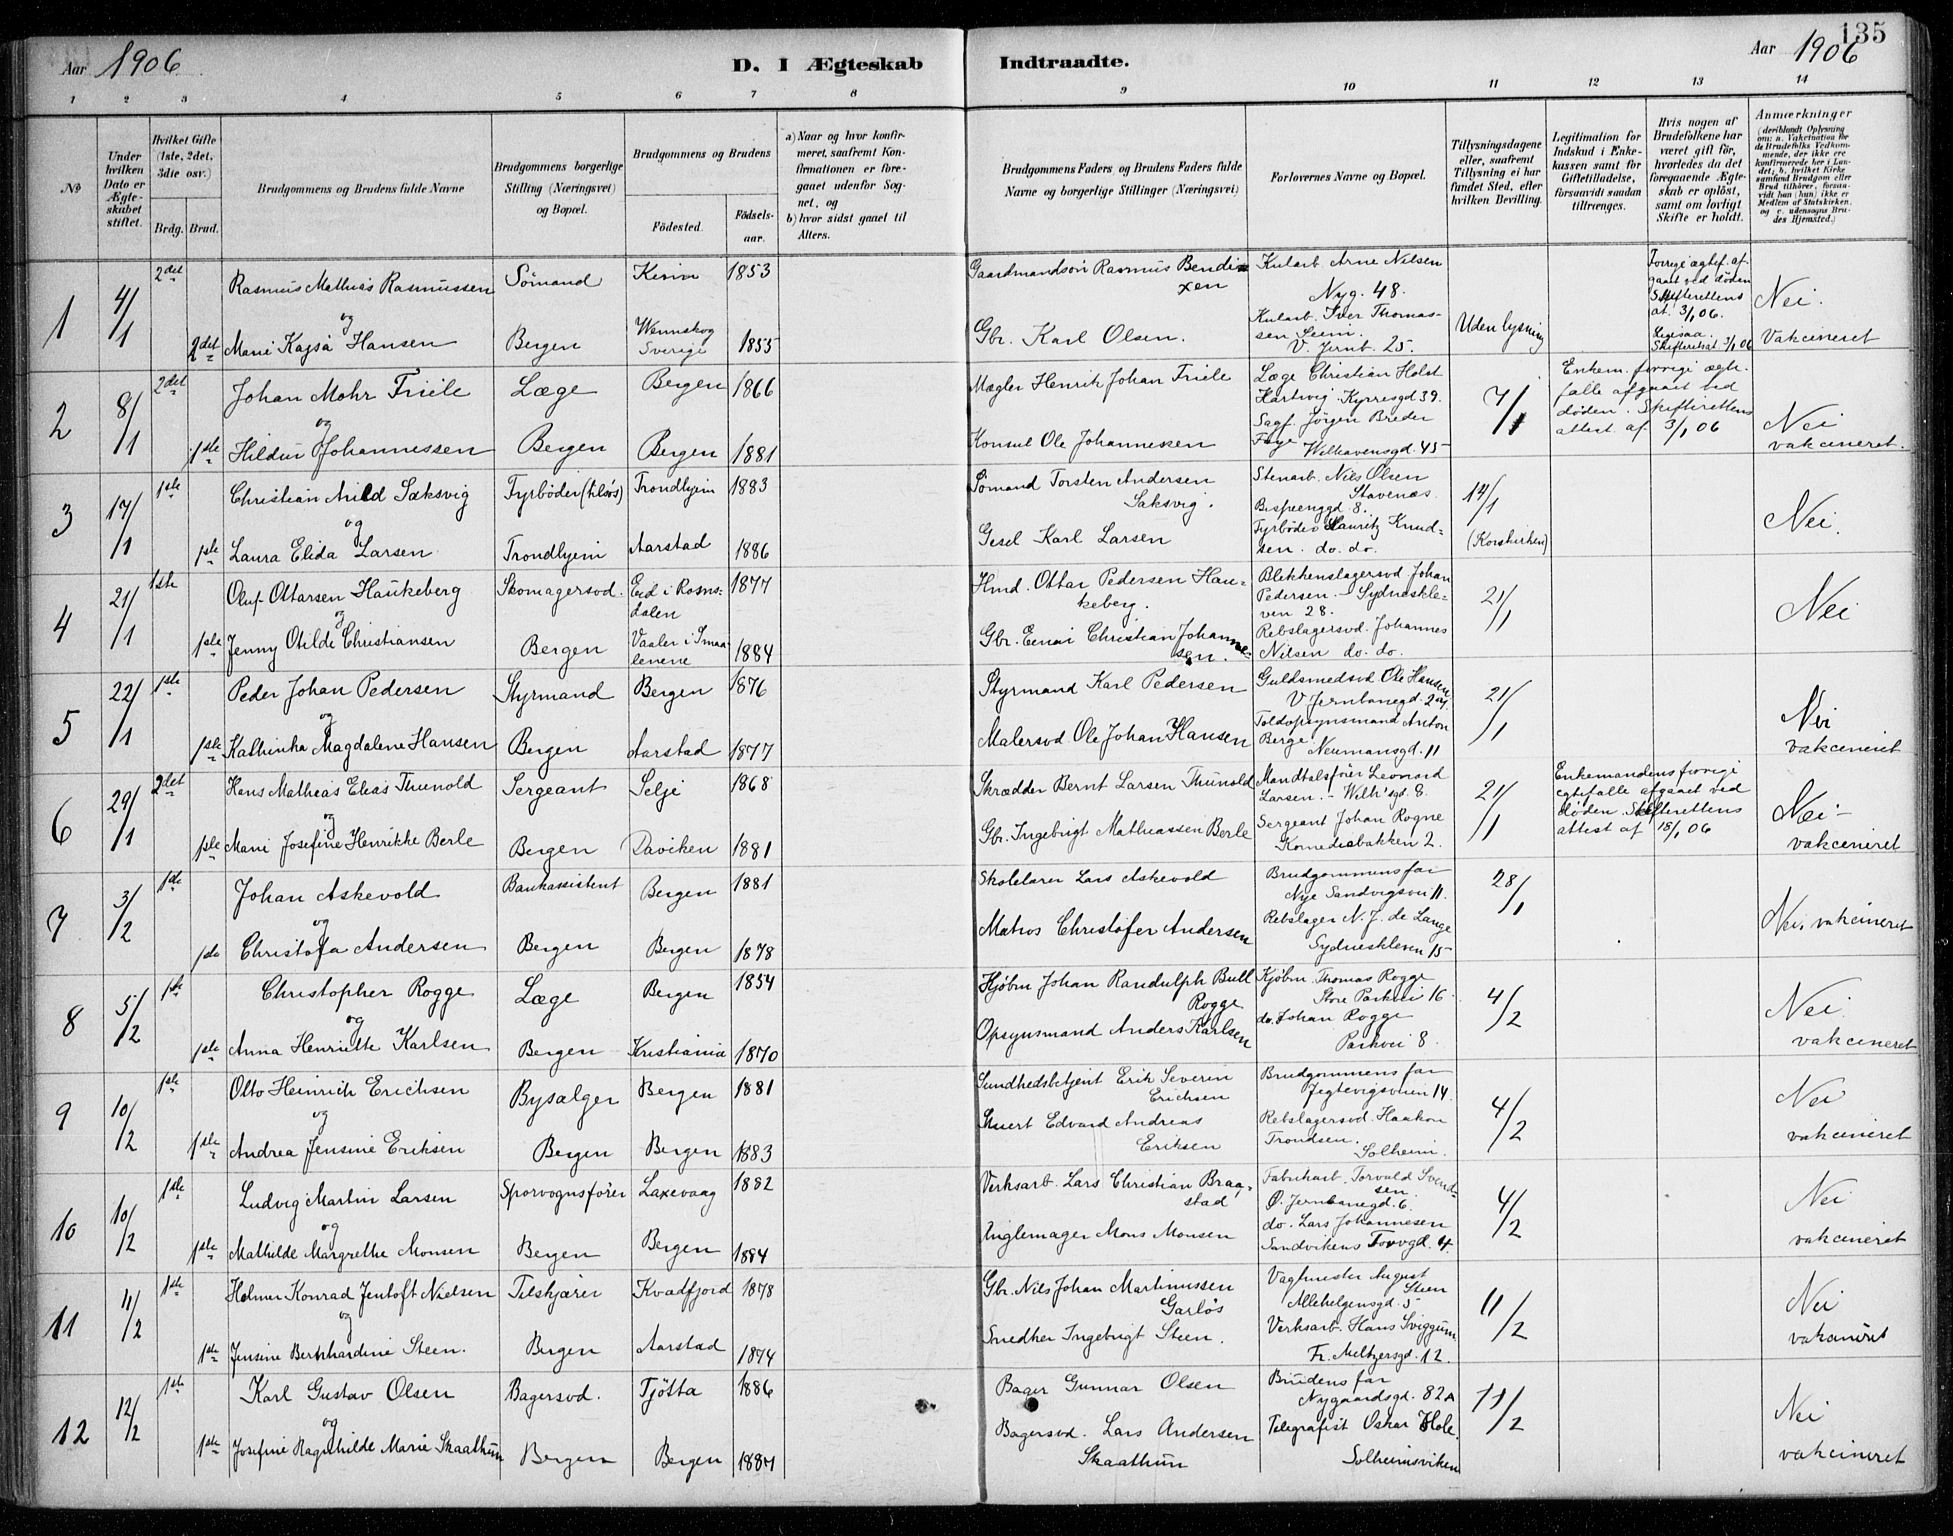 135
Aar 1906
D. I Ægteskab Indtraadte.
Aar 1906
1 2 3 4 5 6 7 8 9 10 11 12 13 14
No
Under hvilken Dato er Ægteskabet stiftet.
Hvilket Gifte (1ste, 2det, 3die osv.)
Brdg. Brud.
Brudgommens og Brudens fulde Navne
Brudgommens borgerlige Stilling (Næringsvei) og Bopæl.
Brudgommens og Brudens
Födested.
Födselsaar.
a) Naar og hvor konfirmeret, saafremt Konfirmationen er foregaaet udenfor Sognet, og
b) hvor sidst gaaet til Alters.
Brudgommens Faders og Brudens Faders fulde Navne og borgerlige Stillinger (Næringsvei)
Forlovernes Navne og Bopæl.
Tillysningsdagene eller, saafremt Tillysning ei har fundet Sted, efter hvilken Bevilling.
Legitimation for Indskud i Enkekassen samt for Giftetilladelse, forsaavidt saadan tiltrænges.
Hvis nogen af Brudefolkene har været gift för, hvorledes da det foregaaende Ægteskab er oplöst, samt om lovligt Skifte er holdt.
Anmærkninger
(deriblandt Oplysning om: a. Vakcination for de Brudefolks Vedkommende, der ikke ere konfirmerede her i Landet; b. hvilket Kirkesamfund Brudgom eller Brud tilhörer, forsaavidt han (hun) ikke er Medlem af Statskirken, og c. udensogns Brudes Hjemsted.)
1 4/1 2det Rasmus Mathias Rasmussen Sömand Kinn 1853 Gaardmandsön Rasmus Bendixen Kularb. Arne Nilsen Nyg. 48. Forrige ægtef. afgaaet ved döden Skifterettens at. 3/1 06. Nei.
og
2det Marie Kajsa Hansen Bergen Wennskog Sverige 1855 Gbr. Karl Olsen. Kularb. Iver Thomassen Seim. V. Jernb. 25. Uden lysning Ligesaa. Skifteretsat 3/1 06 Vakcineret
2 8/1 2det Johan Mohr Friele Læge Bergen 1866 Mægler Henrik Johan Friele Læge Christian Holst Hartvig. Kyrresgd 39. 7/1 Enkem. forrige ægtefælle afgaaet ved döden. Skifterettens attest af 3/1 06 Nei
og
1ste Hildur Johannessen Bergen Bergen 1881 Konsul Ole Johannessen Sagf. Jörgen Breder Faye Welhavensgd. 45 vakcineret.
3 17/1 1ste Christian Arild Saksvig Fyrböder (tilsös) Trondhjem 1883 Sömand Torsten Andersen Saksvig. Stenarb. Nils Olsen Stavenæs. Bispenggd. 8. 14/1 Nei.
og
1ste Laura Elida Larsen Trondhjem Aarstad 1886 Gesel Karl Larsen Fyrböder Lauritz Knudsen. do. do. (Korskirken)
4 21/1 1ste Oluf Ottarsen Haukeberg Skomagersvd. Eid i Romsdalen 1877 Hmd. Ottar Pedersen Haukeberg. Blikkenslagersvd Johan Pedersen. - Sydneskleven 28. 21/1 Nei
og
1ste Jenny Otilde Christiansen Bergen Vaaler i Smaalenene 1884 Gbr. Einar Christian Johannesen. Rebslagersvd. Johannes Nilsen do. do.
5 22/1 1ste Peder Johan Pedersen Styrmand Bergen 1876 Styrmand Karl Pedersen Guldsmedsvd Ole Hansen V. Jernbanegd. 24. 21/1 Nei
og
1ste Kathinka Magdalene Hansen Bergen Aarstad 1877 Malersvd Ole Johan Hansen Toldopsynsmand Anton Berge Neumansgd. 11 vakcineret
6 29/1 2det Hans Mathias Elias Thunold Sergeant Selje 1868 Skrædder Bernt Larsen Thunold Mandtalsförer Leonard Larsen. - Welh'sgd. 8. 21/1 Enkemandens forrige egtefælle afgaaet ved döden. Skifterettens attest af 18/1 06 Nei -
og
1ste Marie Josefine Henrikke Berle Bergen Daviken 1881 Gbr. Ingebrigt Mathiassen Berle Sergeant Johan Rogne Komediebakken 2. vakcineret
7 3/2 1ste Johan Askevold Bankassistent Bergen 1881 Skolelærer Lars Askevold Brudgommens far Nye Sandvigsvei 11. 28/1 Nei, vakcineret
og
1ste Christofa Andersen Bergen Bergen 1878 Matros Christofer Andersen Rebslager N. J. de Lange Sydneskleven 15
8 5/2 1ste Christopher Rogge Læge Bergen 1854 Kjöbm Johan Randulph Bull Rogge Kjöbm. Thomas Rogge Store Parkvei 16 4/2 Nei.
og
1ste Anna Henriette Karlsen Bergen Kristiania 1870 Opsynsmand Anders Karlsen do. Johan Rogge Parkvei 8. vakcineret
9 10/2 1ste Otto Heinrich Erichsen Bysælger Bergen 1881 Sundhedsbetjent Erik Severin Erichsen Brudgommens far Jegtevigsveien 14. 4/2 Nei
og
1ste Andrea Jensine Eriksen Bergen Bergen 1883 Edvard Andreas Eriksen Rebslagersvd. Haakon Trondsen. Solheim. vakcineret
10 10/2 1ste Ludvig Martin Larsen Sporvognsförer Laxevaag 1882 Verksarb. Lars Christian Braastad Fabrikarb. Torvald Svendsen. Ö. Jernbanegd. 6. 4/2 Nei
og
1ste Mathilde Margrethe Monsen Bergen Bergen 1884 Mons Monsen do. Lars Johannesen Sandvikens Torvgd. 4. vakcineret
11 11/2 1ste Helmer Konrad Jentoft Nielsen Tilskjærer Kvædfjord 1878 Gbr. Nils Johan Martinussen Garlös Vagtmester August Steen Allehelgensgd. 5 11/2 Nei
og
1ste Jensine Bernhardine Steen. Bergen Aarstad 1874 Snedker Ingebrigt Steen. Verksarb. Hans Sviggum Fr. Meltzersgd. 12. vakcineret
12 12/2 1ste Karl Gustav Olsen Bagersvd. Tjötta 1886 Bager Gunnar Olsen Brudens far Nygaardsgd. 82A 11/2 Nei
og
1ste Josefine Ragnhilde Marie Skaathun Bergen Bergen 1887 Bagersvd. Lars Andersen Skaathun Telegrafist Oskar Hole. Solheimsviken vakcineret